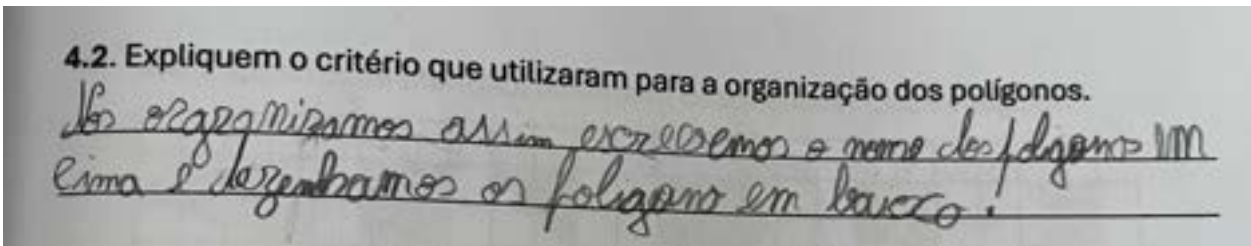 4.2. Expliquem o critério que utilizaram para a organização dos polígonos.
Nós orgaganizamos assim escrevemos o nome dos poligonos im
cima e dezenhamos os poligono em baicco.